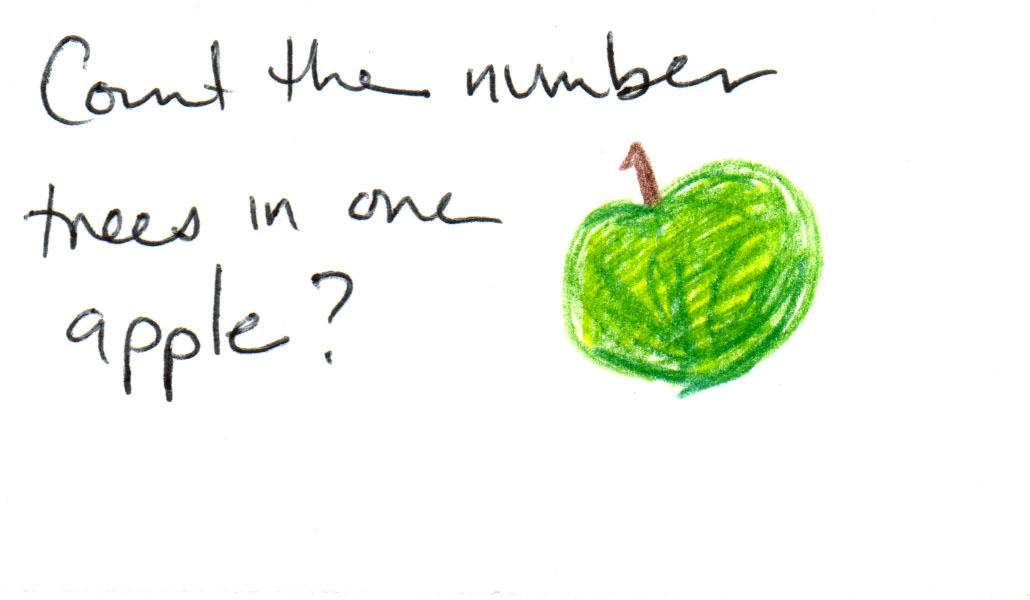 Count the number
trees in one
apple?